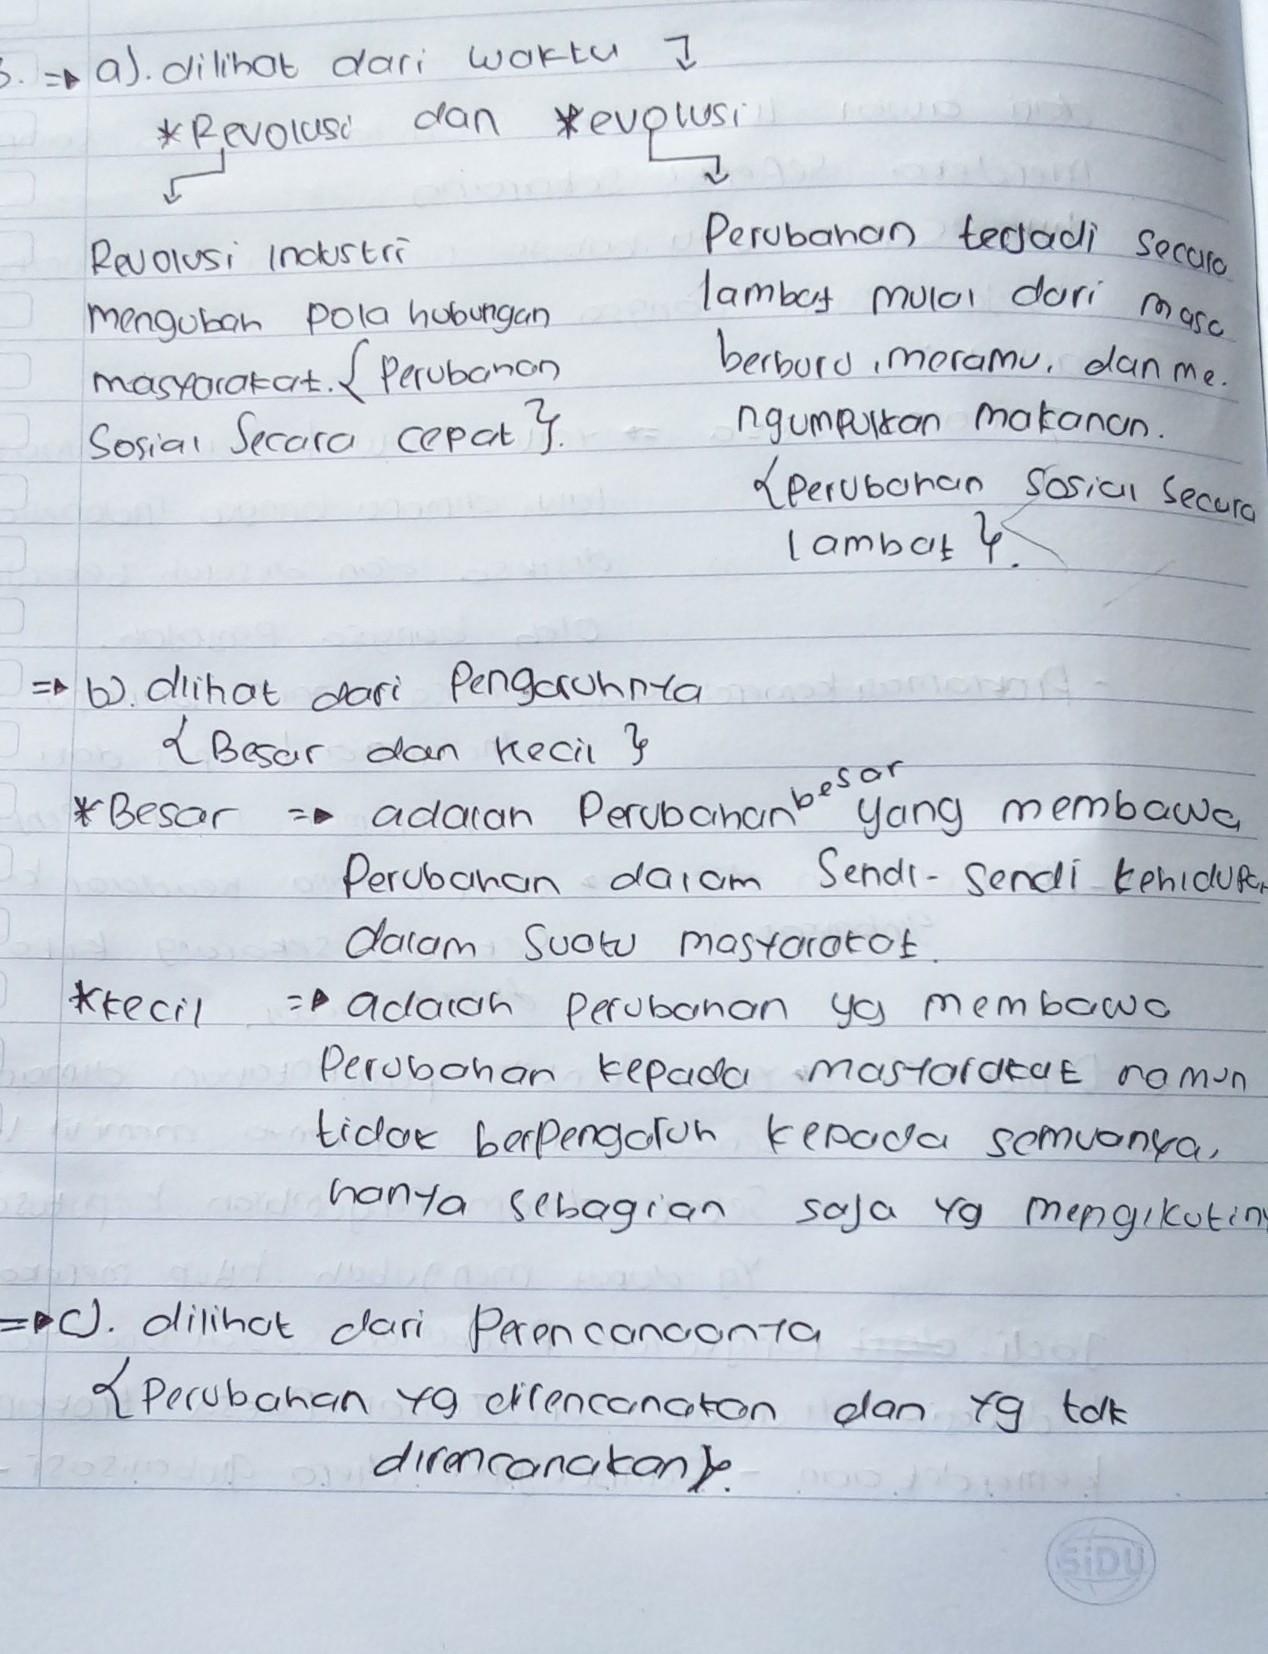 3. => a). dilihat dari waktu
*Revolusi dan *evolusi
Revolusi industri
mengubah pola hubungan
masyarakat. {Perubahan
Sosial Secara cepat}.
Perubahan terjadi secara
lambat mulai dari masa
berburu, meramu, dan me-
ngumpulkan makanan.
{Perubahan Sosial Secara
lambat}.
=> b). dlihat dari Pengaruhnya
{Besar dan Kecil}
*Besar => adalah Perubahan besar yang membawa
Perubahan dalam Sendi-Sendi kehidupan
dalam Suatu masyarakat.
*kecil => adalah perubahan yg membawa
Perubahan kepada masyarakat namun
tidak berpengaruh kepada semuanya,
hanya sebagian saja yg mengikutiny
=> c). dilihat dari Perencanaanya
{Perubahan yg direncanakan dan yg tdk
direncanakan}.
SiDU